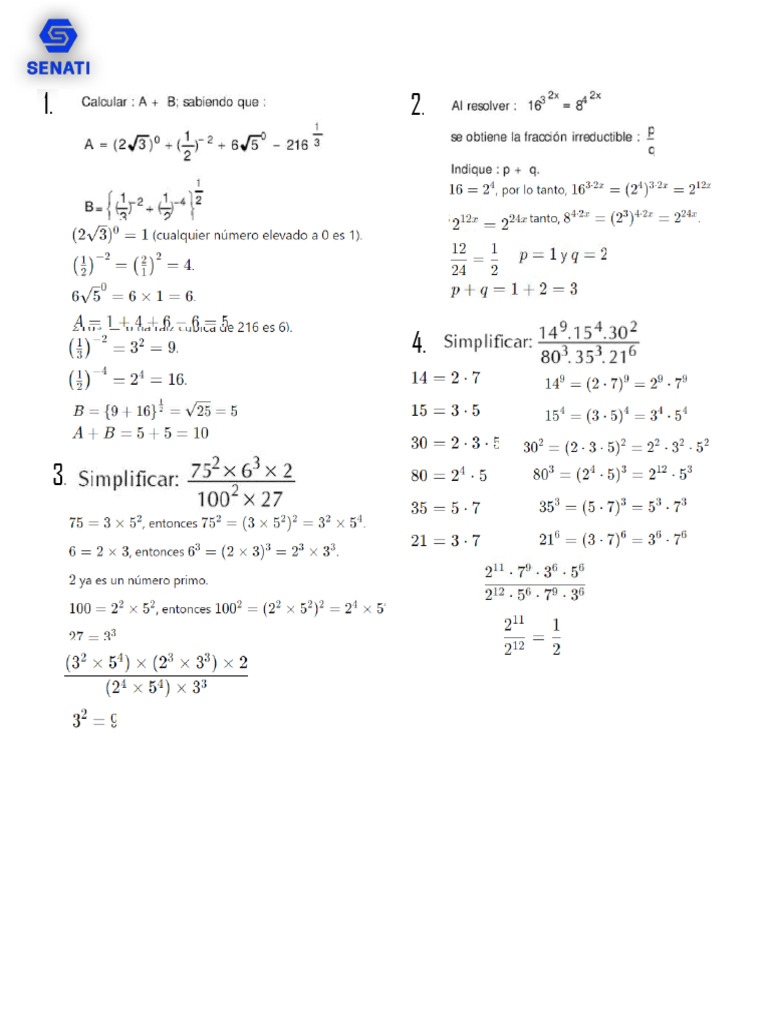 SENATI
1. Calcular : A + B; sabiendo que :
A = (2√3)⁰ + (1/2)⁻² + 6√5⁰ − 216^(1/3)
B = {(1/3)⁻² + (1/2)⁻⁴}^(1/2)
(2√3)⁰ = 1 (cualquier número elevado a 0 es 1).
(1/2)⁻² = (2/1)² = 4.
6√5⁰ = 6 × 1 = 6.
A = 1 + 4 + 6 − 6 = 5
de 216 es 6).
(1/3)⁻² = 3² = 9.
(1/2)⁻⁴ = 2⁴ = 16.
B = {9 + 16}^(1/2) = √25 = 5
A + B = 5 + 5 = 10
3. Simplificar: (75² × 6³ × 2)/(100² × 27)
75 = 3 × 5², entonces 75² = (3 × 5²)² = 3² × 5⁴.
6 = 2 × 3, entonces 6³ = (2 × 3)³ = 2³ × 3³.
2 ya es un número primo.
100 = 2² × 5², entonces 100² = (2² × 5²)² = 2⁴ × 5
27 = 3³
((3² × 5⁴) × (2³ × 3³) × 2)/((2⁴ × 5⁴) × 3³)
3² = 9
2. Al resolver : 16^(3^(2x)) = 8^(4^(2x))
se obtiene la fracción irreductible : p/q
Indique : p + q.
16 = 2⁴, por lo tanto, 16^(3·2x) = (2⁴)^(3·2x) = 2^(12x)
2^(12x) = 2^(24x) tanto, 8^(4·2x) = (2³)^(4·2x) = 2^(24x).
12/24 = 1/2 p = 1 y q = 2
p + q = 1 + 2 = 3
4. Simplificar: (14⁹.15⁴.30²)/(80³.35³.21⁶)
14 = 2 · 7 14⁹ = (2 · 7)⁹ = 2⁹ · 7⁹
15 = 3 · 5 15⁴ = (3 · 5)⁴ = 3⁴ · 5⁴
30 = 2 · 3 · 5 30² = (2 · 3 · 5)² = 2² · 3² · 5²
80 = 2⁴ · 5 80³ = (2⁴ · 5)³ = 2¹² · 5³
35 = 5 · 7 35³ = (5 · 7)³ = 5³ · 7³
21 = 3 · 7 21⁶ = (3 · 7)⁶ = 3⁶ · 7⁶
(2¹¹ · 7⁹ · 3⁶ · 5⁶)/(2¹² · 5⁶ · 7⁹ · 3⁶)
2¹¹/2¹² = 1/2